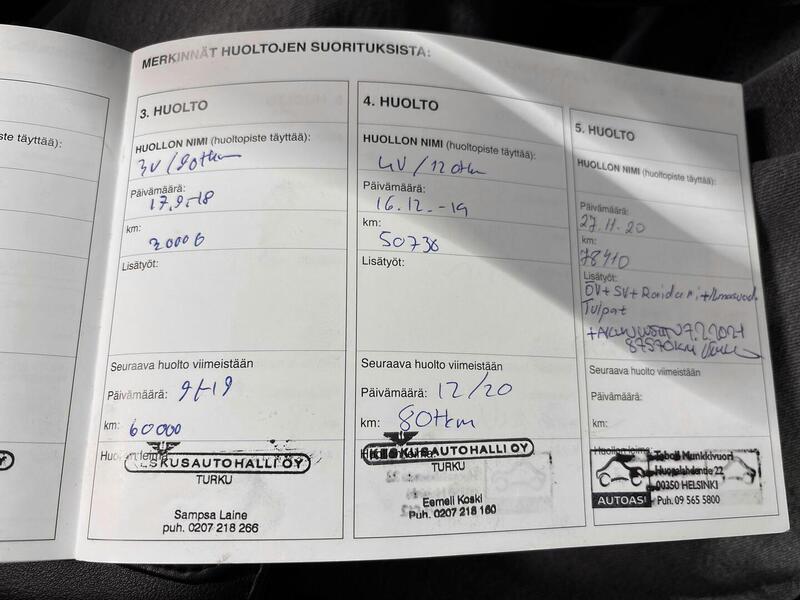 MERKINNÄT HUOLTOJEN SUORITUKSISTA:
ste täyttää):
3. HUOLTO
HUOLLON NIMI (huoltopiste täyttää):
3V/90tkm
Päivämäärä:
17.9.-18
km:
Lisätyöt:
Seuraava huolto viimeistään
Päivämäärä: 9/-19
km: 60000
Huollon leima:
KESKUSAUTOHALLI OY
TURKU
Sampsa Laine
puh. 0207 218 266
4. HUOLTO
HUOLLON NIMI (huoltopiste täyttää):
4V/120tkm
Päivämäärä:
16.12.-19
km:
50738
Lisätyöt:
Seuraava huolto viimeistään
Päivämäärä: 12/20
km: 80tkm
KESKUSAUTOHALLI OY
TURKU
Eemeli Koski
Puh. 0207 218 160
5. HUOLTO
HUOLLON NIMI (huoltopiste täyttää):
Päivämäärä:
27.11.20
km:
78410
Lisätyöt:
ÖV+SV+Raidari+Ilmansuod.
Tulpat
7.2.2021
87570km
Seuraava huolto viimeistään
Päivämäärä:
km:
Huollon leima:
Teboil Munkkivuori
Huopalahdentie 22
00350 HELSINKI
AUTOASI Puh. 09 565 5800